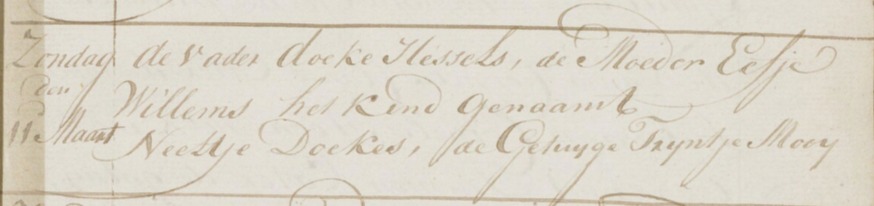 Zondag de vader doeke Hessels, de Moeder Eefje
den Willems het Kind Genaamt
11 Maart Neeltje Doekes, de Getuyge Tryntje Mooy